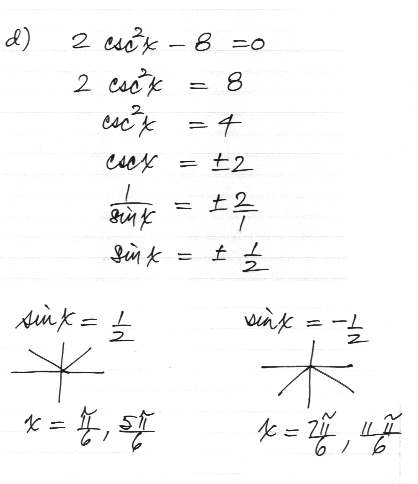 d) 2 csc²x - 8 = 0
2 csc²x = 8
csc²x = 4
cscx = ±2
1/sinx = ±2/1
sinx = ± 1/2
sinx = 1/2
x = π/6, 5π/6
sinx = -1/2
x = 7π/6, 11π/6